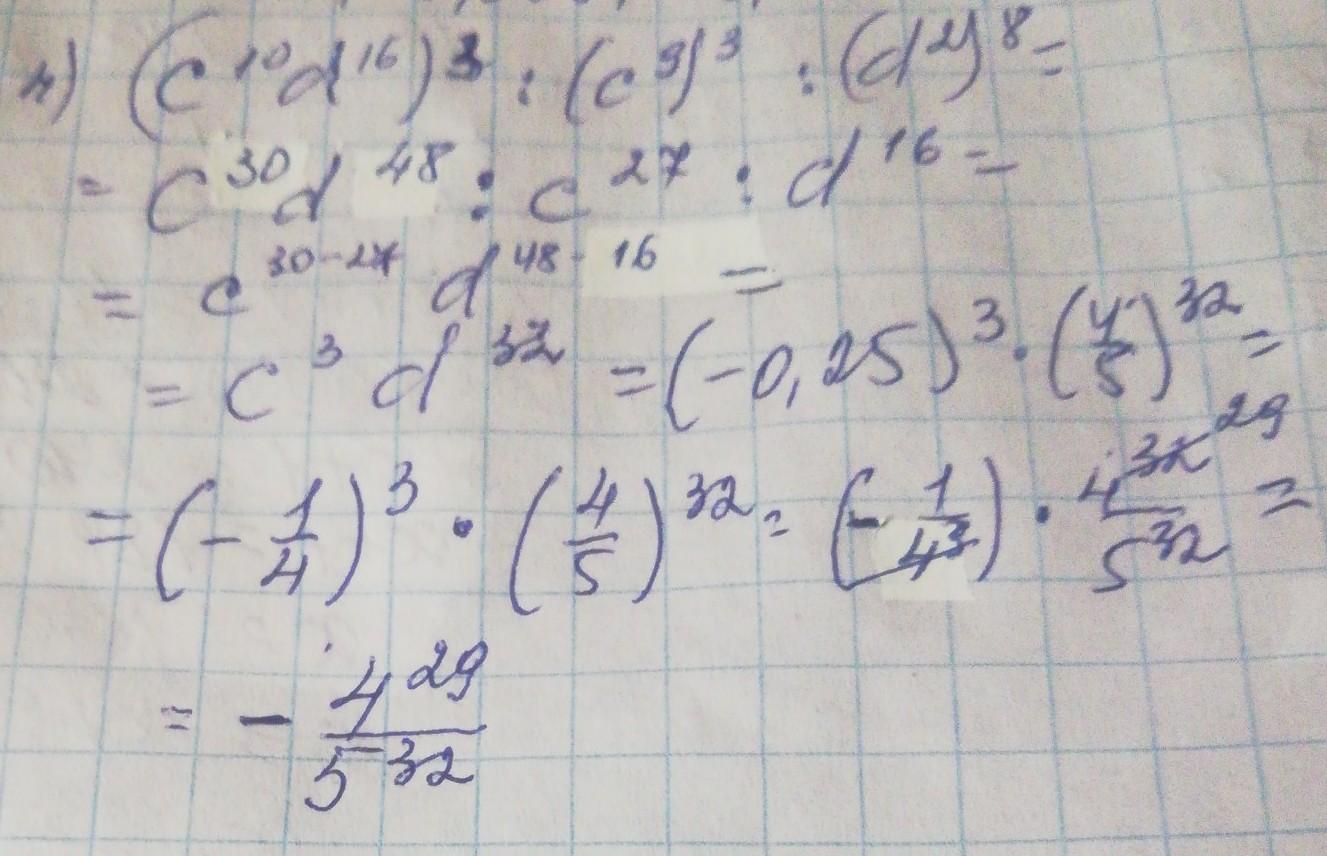 л) (c¹⁰d¹⁶)³ : (c⁹)³ : (d²)⁸ =
= c³⁰d⁴⁸ : c²⁷ : d¹⁶ =
= c³⁰⁻²⁷ d⁴⁸⁻¹⁶ =
= c³ d³² = (-0,25)³ · (4/5)³² =
= (-1/4)³ · (4/5)³² = (-1/4³) · 4³² ²⁹/5³² =
= - 4²⁹/5³²